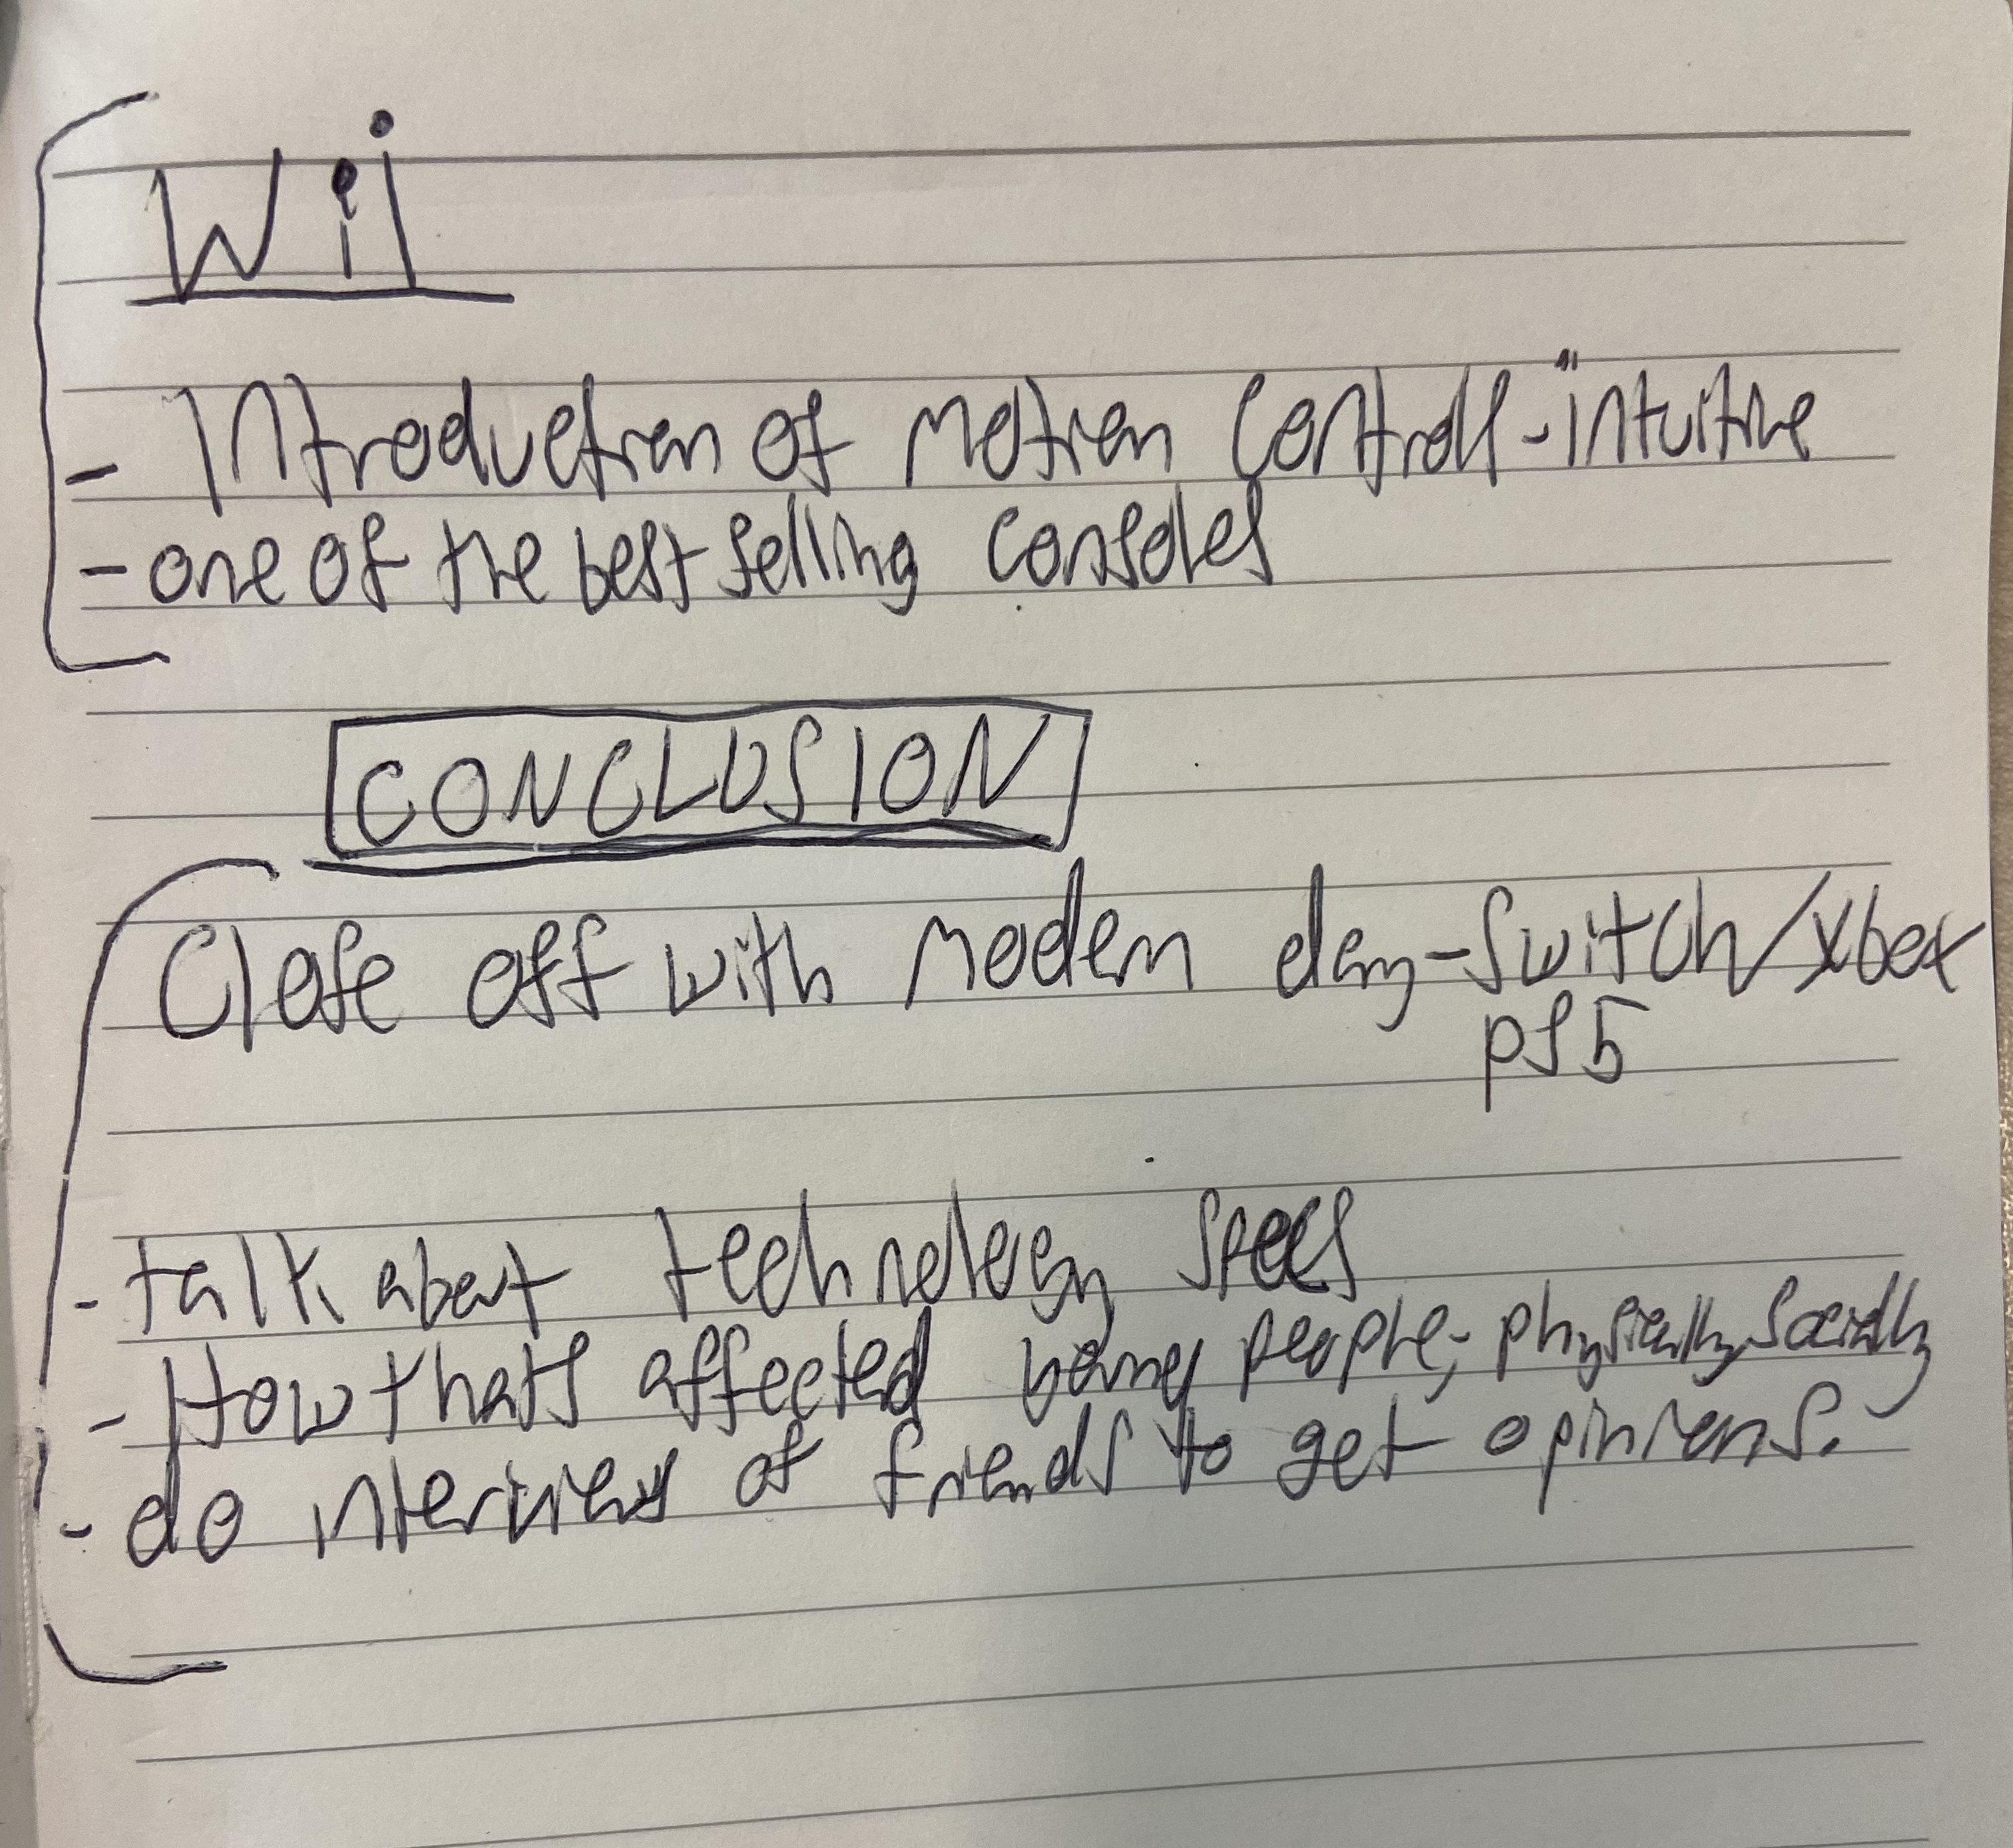 Wii
- Introduction of motion controll - intuitive
- one of the best selling consoles
CONCLUSION
Close off with modern day - Switch/Xbox
PS5
- talk about technology specs
- How thats affected young people, physically, socially
- do interviews of friends to get opinions.